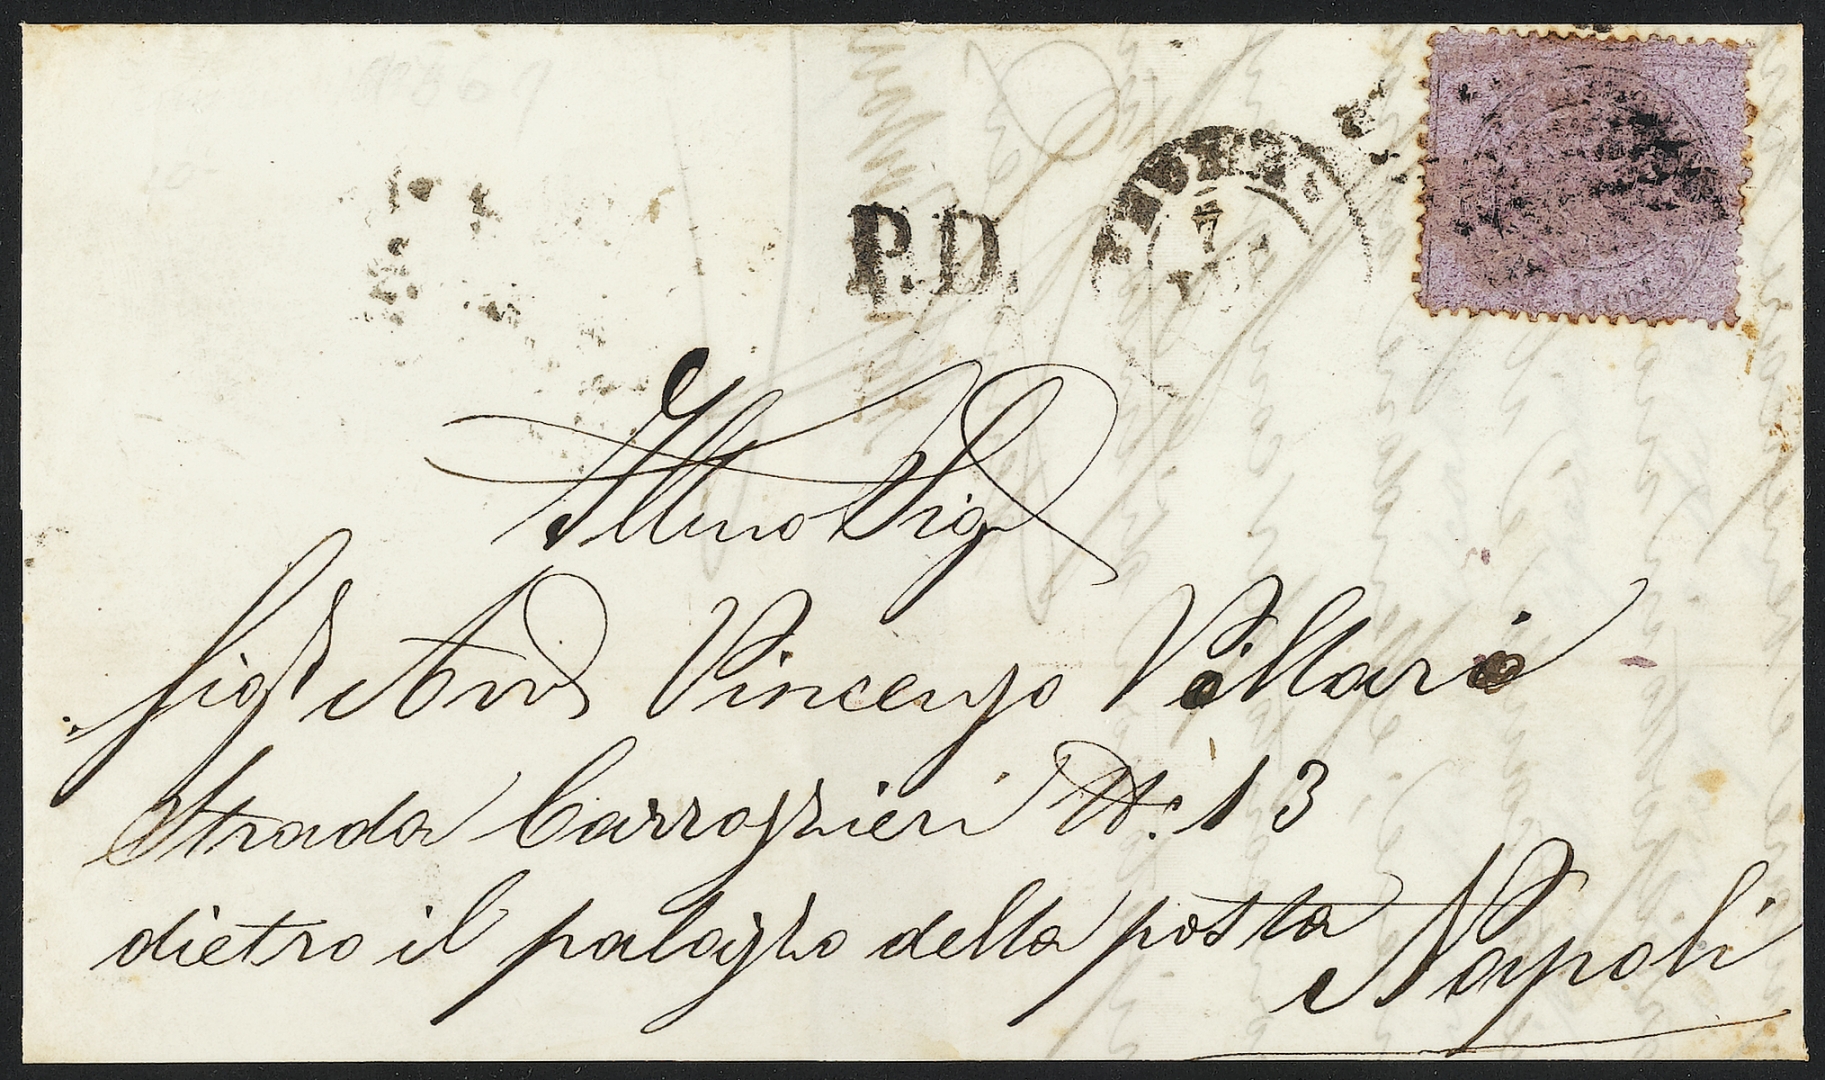 P.D.
7
Illmo Sig.
Sigr Avv. Vincenzo Villari
Strada Carrozzieri No: 13
dietro il palazzo della posta
Napoli